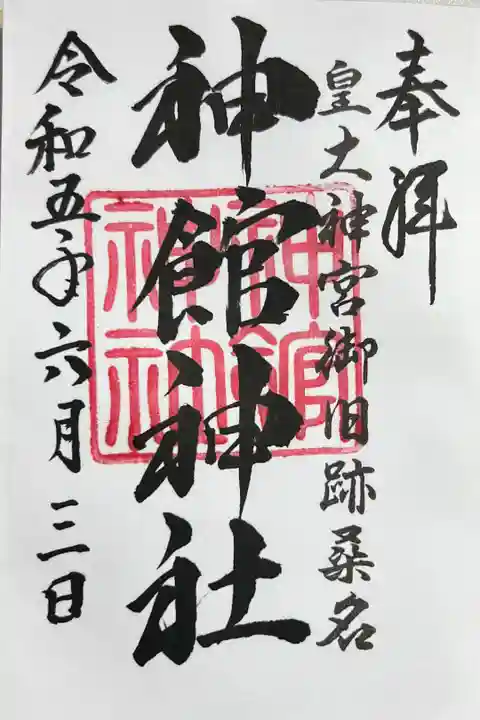 奉拝
皇大神宮御旧跡桑名
神館神社
神館神社
令和五年六月三日